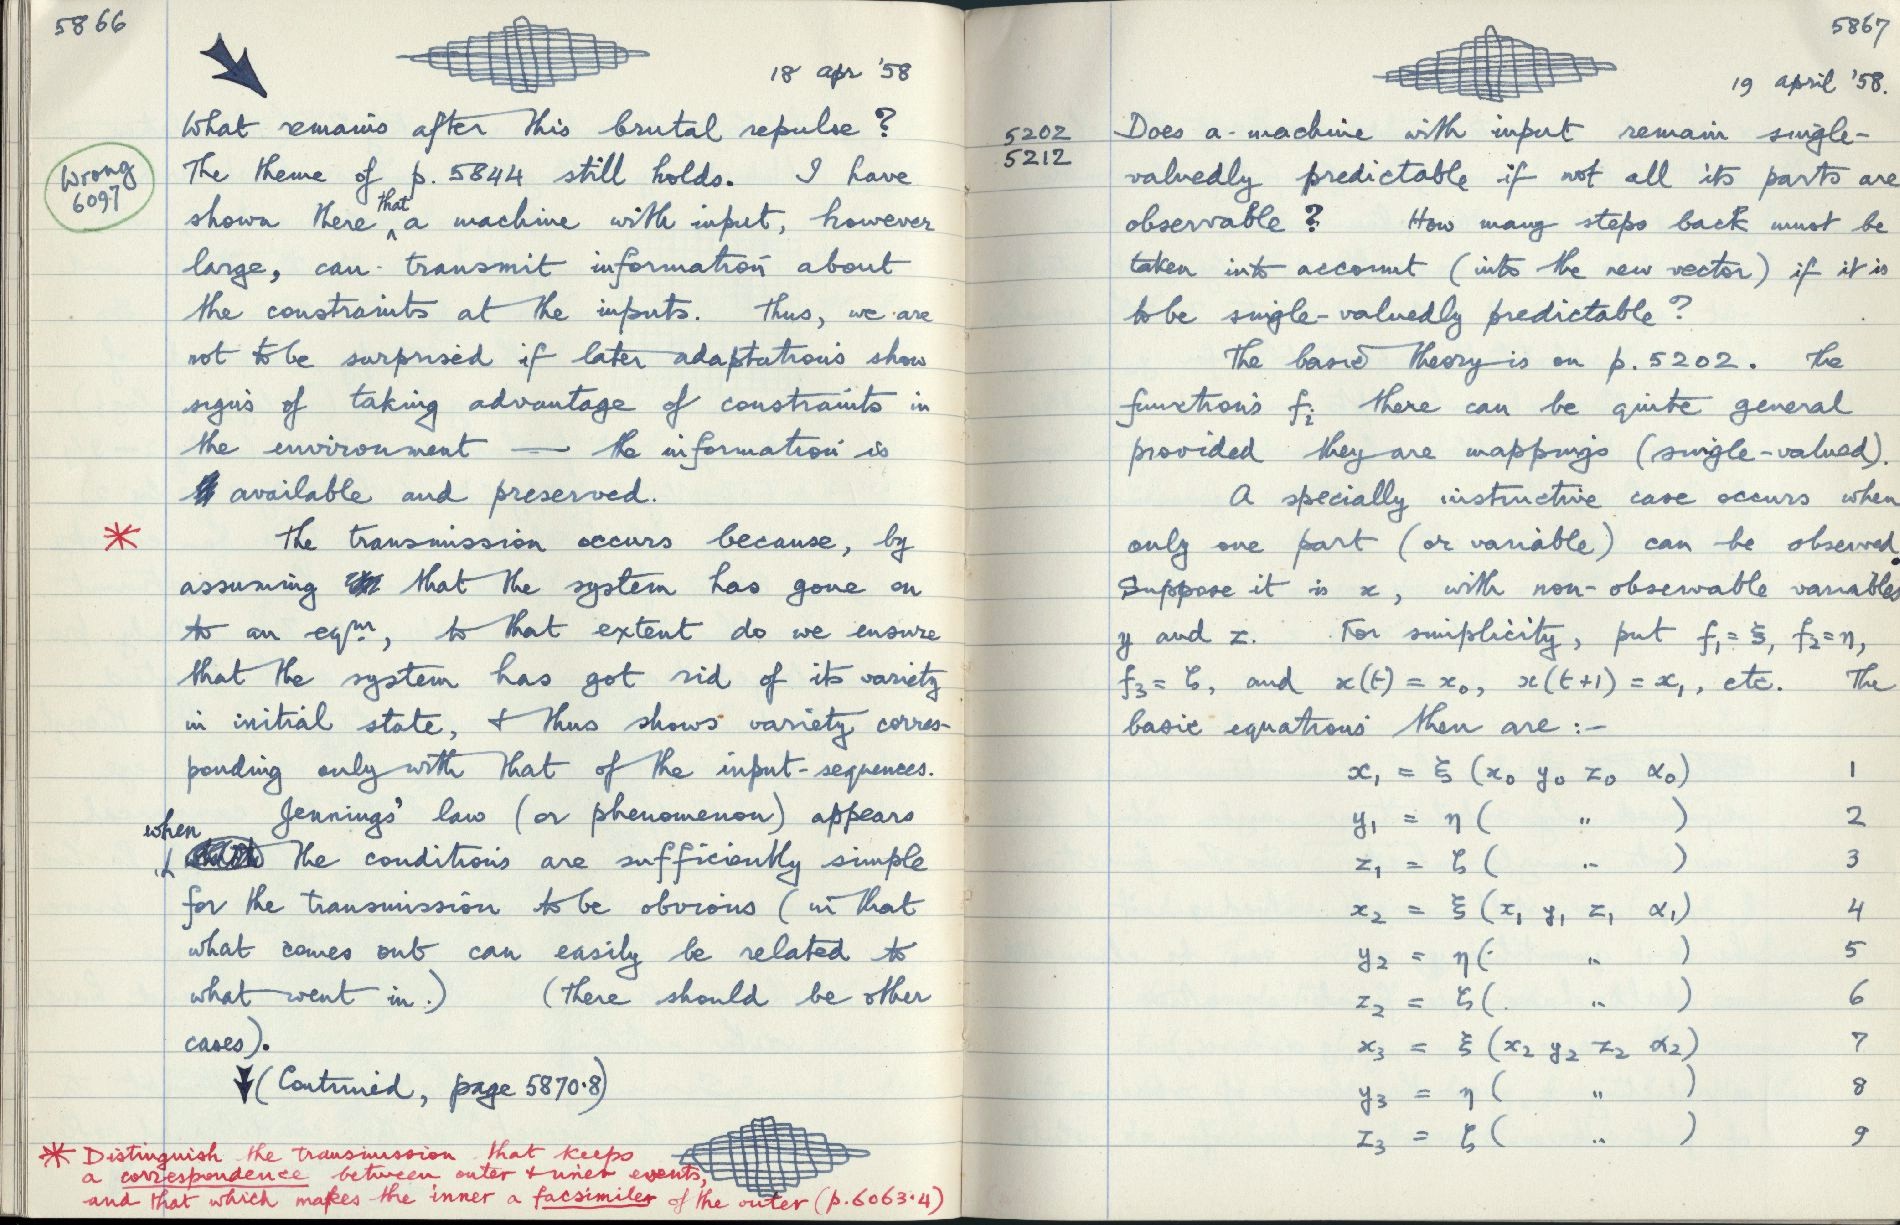 5866
18 apr '58
What remains after this brutal repulse?
The theme of p. 5844 still holds. I have
Wrong
6097
shown there that a machine with input, however
large, can transmit information about
the constraints at the inputs. Thus, we are
not to be surprised if later adaptations show
signs of taking advantage of constraints in
the environment — the information is
available and preserved.
* The transmission occurs because, by
assuming that the system has gone on
to an eqm, to that extent do we ensure
that the system has got rid of its variety
in initial state, & thus shows variety corres-
ponding only with that of the input-sequences.
Jennings' law (or phenomenon) appears
when the conditions are sufficiently simple
for the transmission to be obvious (in that
what comes out can easily be related to
what went in.) (There should be other
cases).
(Continued, page 5870.8)
* Distinguish the transmission that keeps
a correspondence between outer & inner events,
and that which makes the inner a facsimile of the outer (p. 6063.4)
5867
19 april '58.
5202
5212
Does a machine with input remain single-
valuedly predictable if not all its parts are
observable? How many steps back must be
taken into account (into the new vector) if it is
to be single-valuedly predictable?
The basic theory is on p. 5202. The
functions fᵢ there can be quite general
provided they are mappings (single-valued).
A specially instructive case occurs when
only one part (or variable) can be observed.
Suppose it is x, with non-observable variables
y and z. For simplicity, put f₁ = ξ, f₂ = η,
f₃ = ζ, and x(t) = x₀, x(t+1) = x₁, etc. The
basic equations then are :-
x₁ = ξ (x₀ y₀ z₀ α₀) 1
y₁ = η ( " ) 2
z₁ = ζ ( " ) 3
x₂ = ξ (x₁ y₁ z₁ α₁) 4
y₂ = η ( " ) 5
z₂ = ζ ( " ) 6
x₃ = ξ (x₂ y₂ z₂ α₂) 7
y₃ = η ( " ) 8
z₃ = ζ ( " ) 9